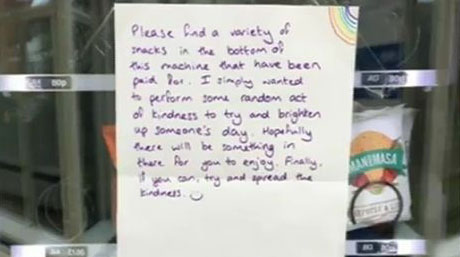 Please find a variety of
snacks in the bottom of
this machine that have been
paid for. I simply wanted
to perform some random act
of kindness to try and brighten
up someone's day. Hopefully
there will be something in
there for you to enjoy. Finally,
if you can, try and spread the
kindness.
80p
MANOMASA